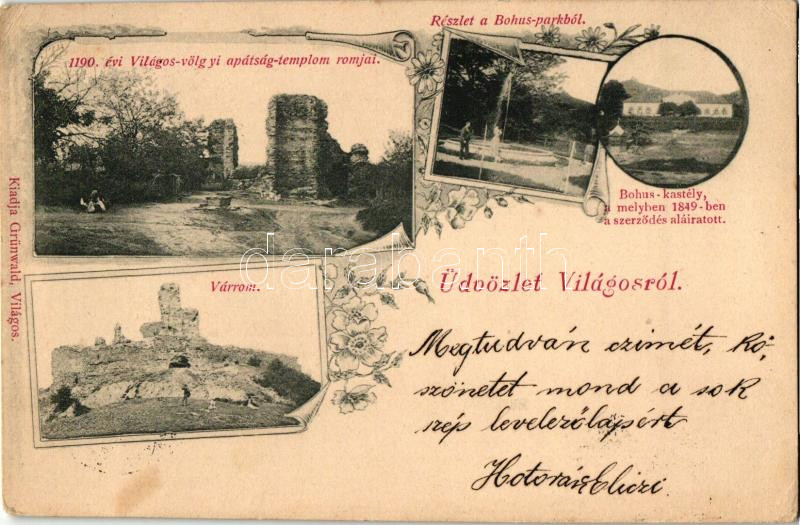 Részlet a Bohus-parkból.
1190. évi Világos-völgyi apátság-templom romjai.
Bohus-kastély,
a melyben 1849-ben
a szerződés aláiratott.
Kiadja Grünwald, Világos.
Várrom.
Üdvözlet Világosról.
darabanth.com
Megtudván czimét, kö-
szönetet mond a sok
szép levelezőlapért